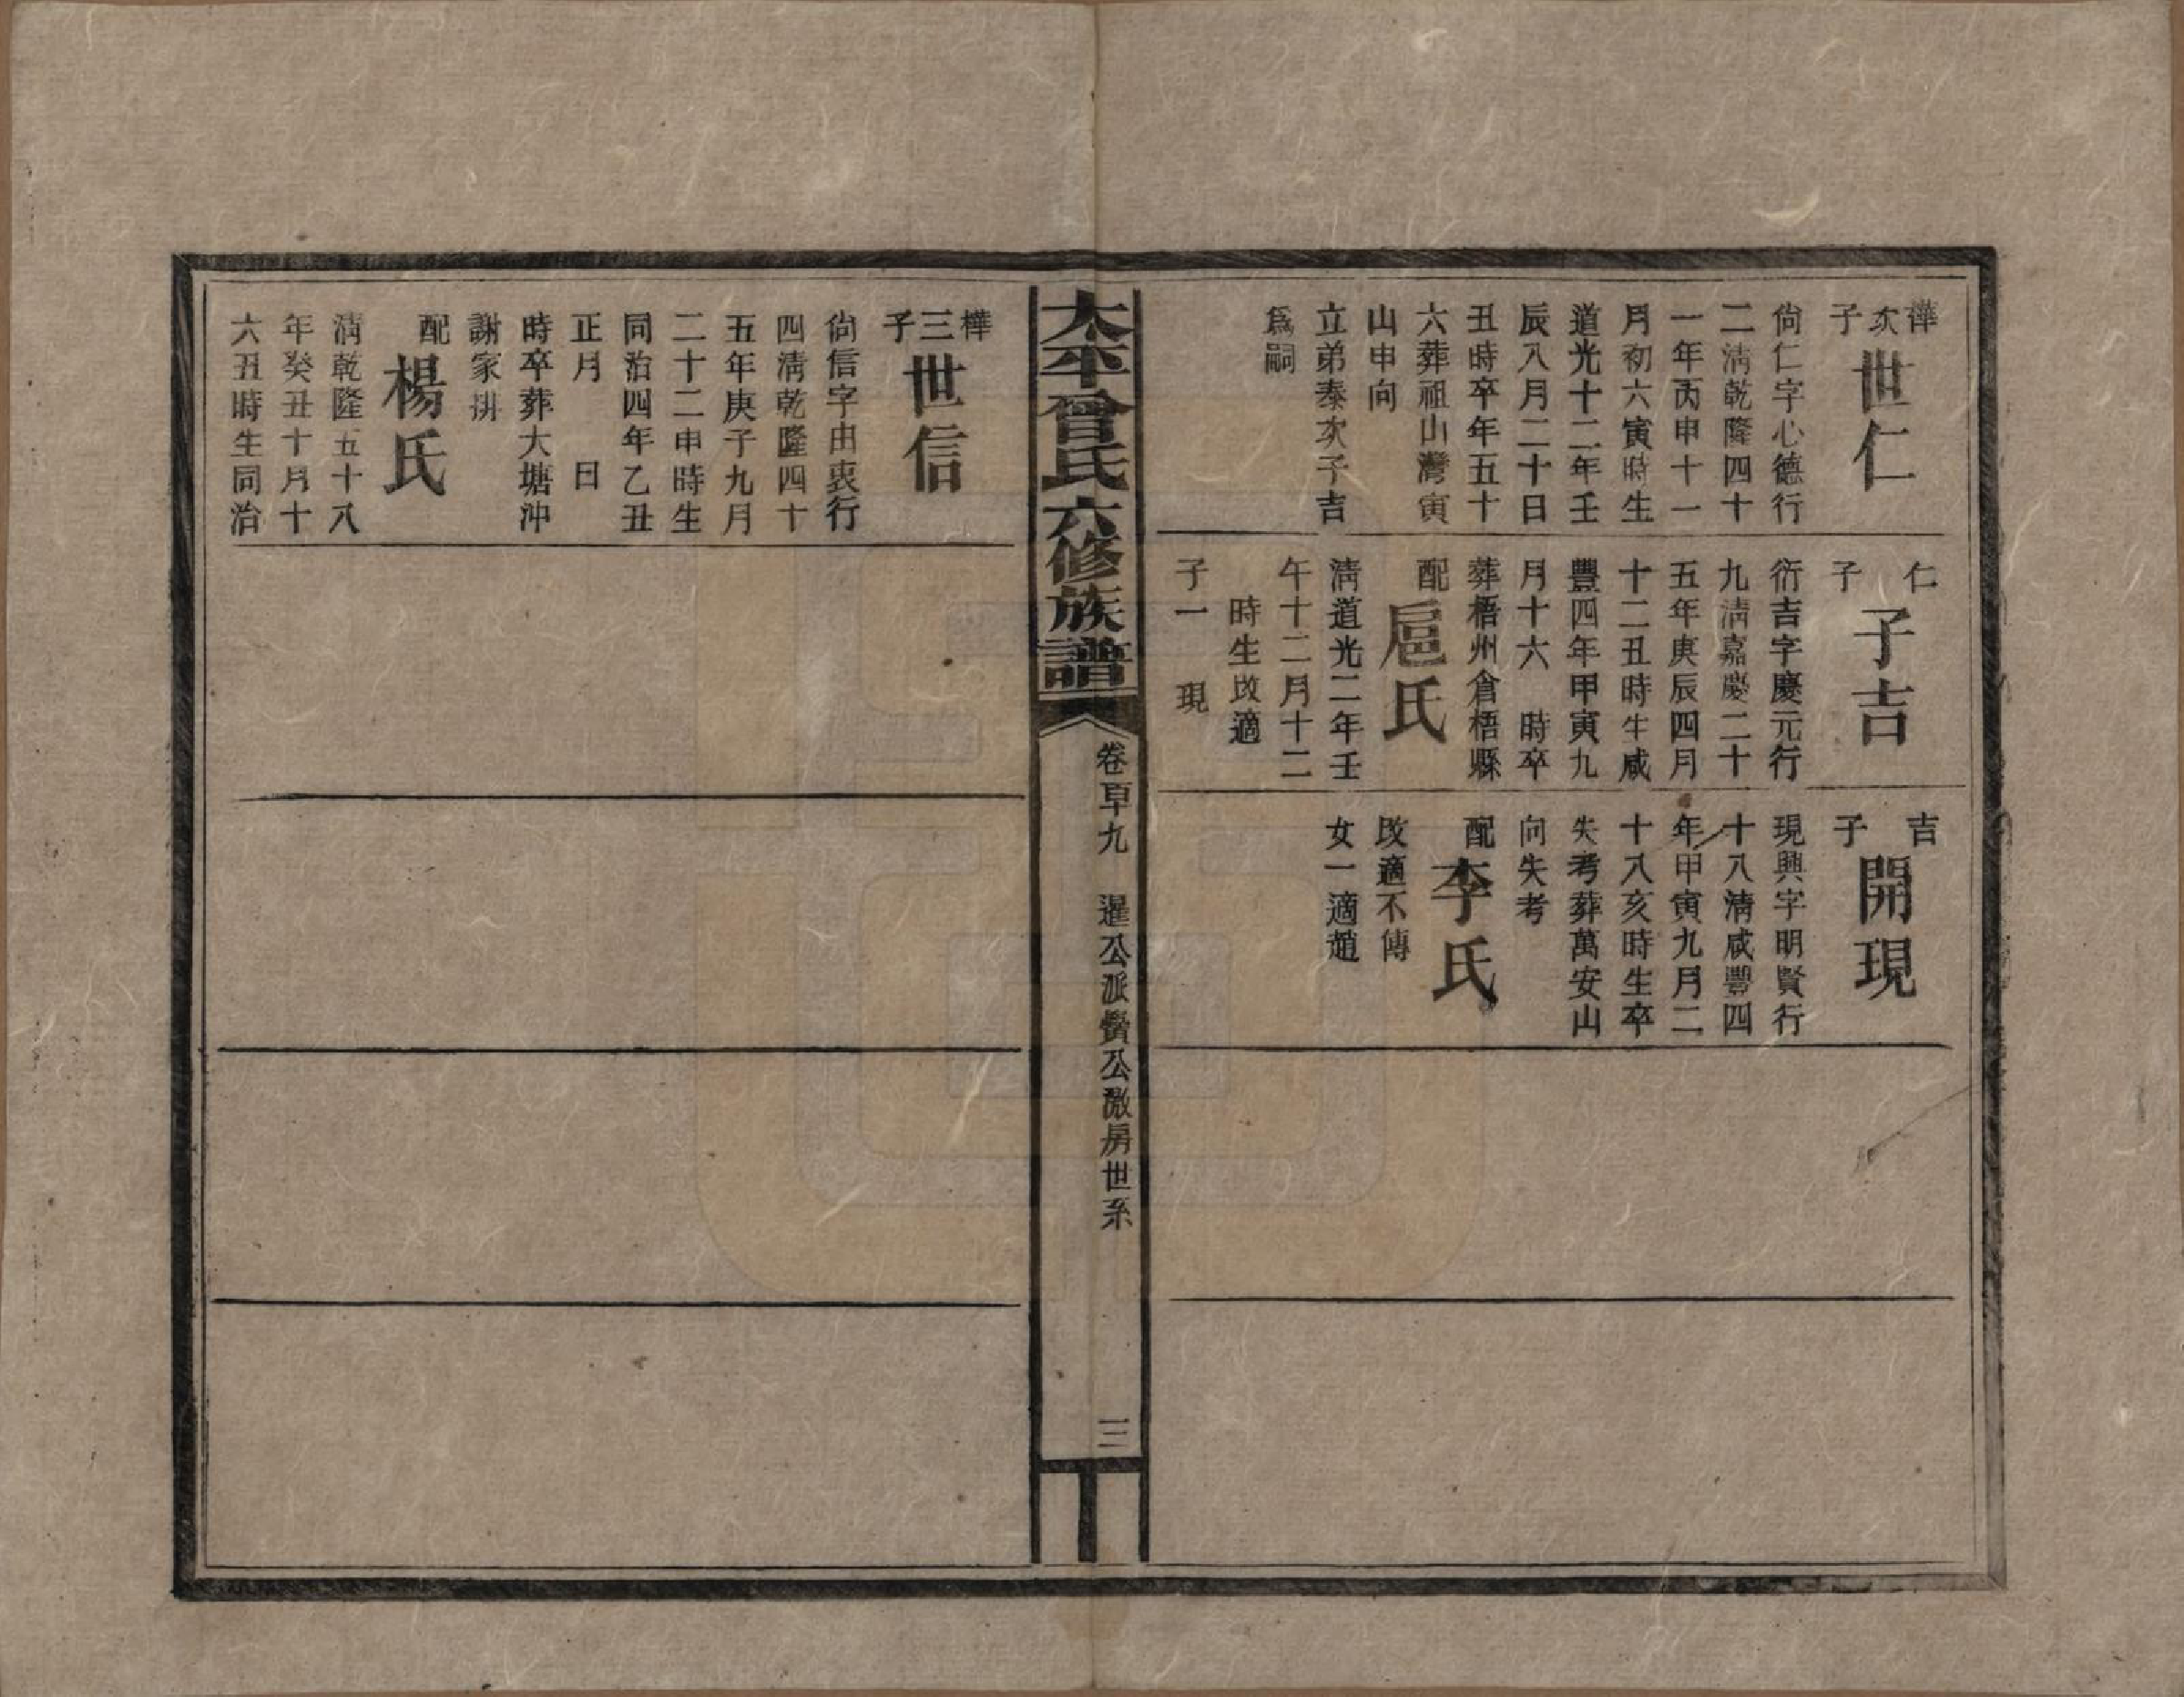 樺次子
世仁
尙仁字心德行
二淸乾隆四十
一年丙申十一
月初六寅時生
道光十二年壬
辰八月二十日
丑時卒年五十
六葬祖山灣寅
山申向
立弟泰次子吉
爲嗣
仁子
子吉
衍吉字慶元行
九淸嘉慶二十
五年庚辰四月
十二丑時生咸
豐四年甲寅九
月十六 時卒
葬梧州倉梧縣
配
扈氏
淸道光二年壬
午十二月十二
時生改適
子一 現
吉子
開現
現興字明賢行
十八淸咸豐四
年甲寅九月二
十八亥時生卒
失考葬萬安山
向失考
配
李氏
改適不傳
女一適趙
太平曾氏六修族譜
卷百九 暹公派 公激房世系
三
樺三子
世信
尙信字由衷行
四淸乾隆四十
五年庚子九月
二十二申時生
同治四年乙丑
正月 日
時卒葬大塘沖
謝家排
配
楊氏
淸乾隆五十八
年癸丑十月十
六丑時生同治